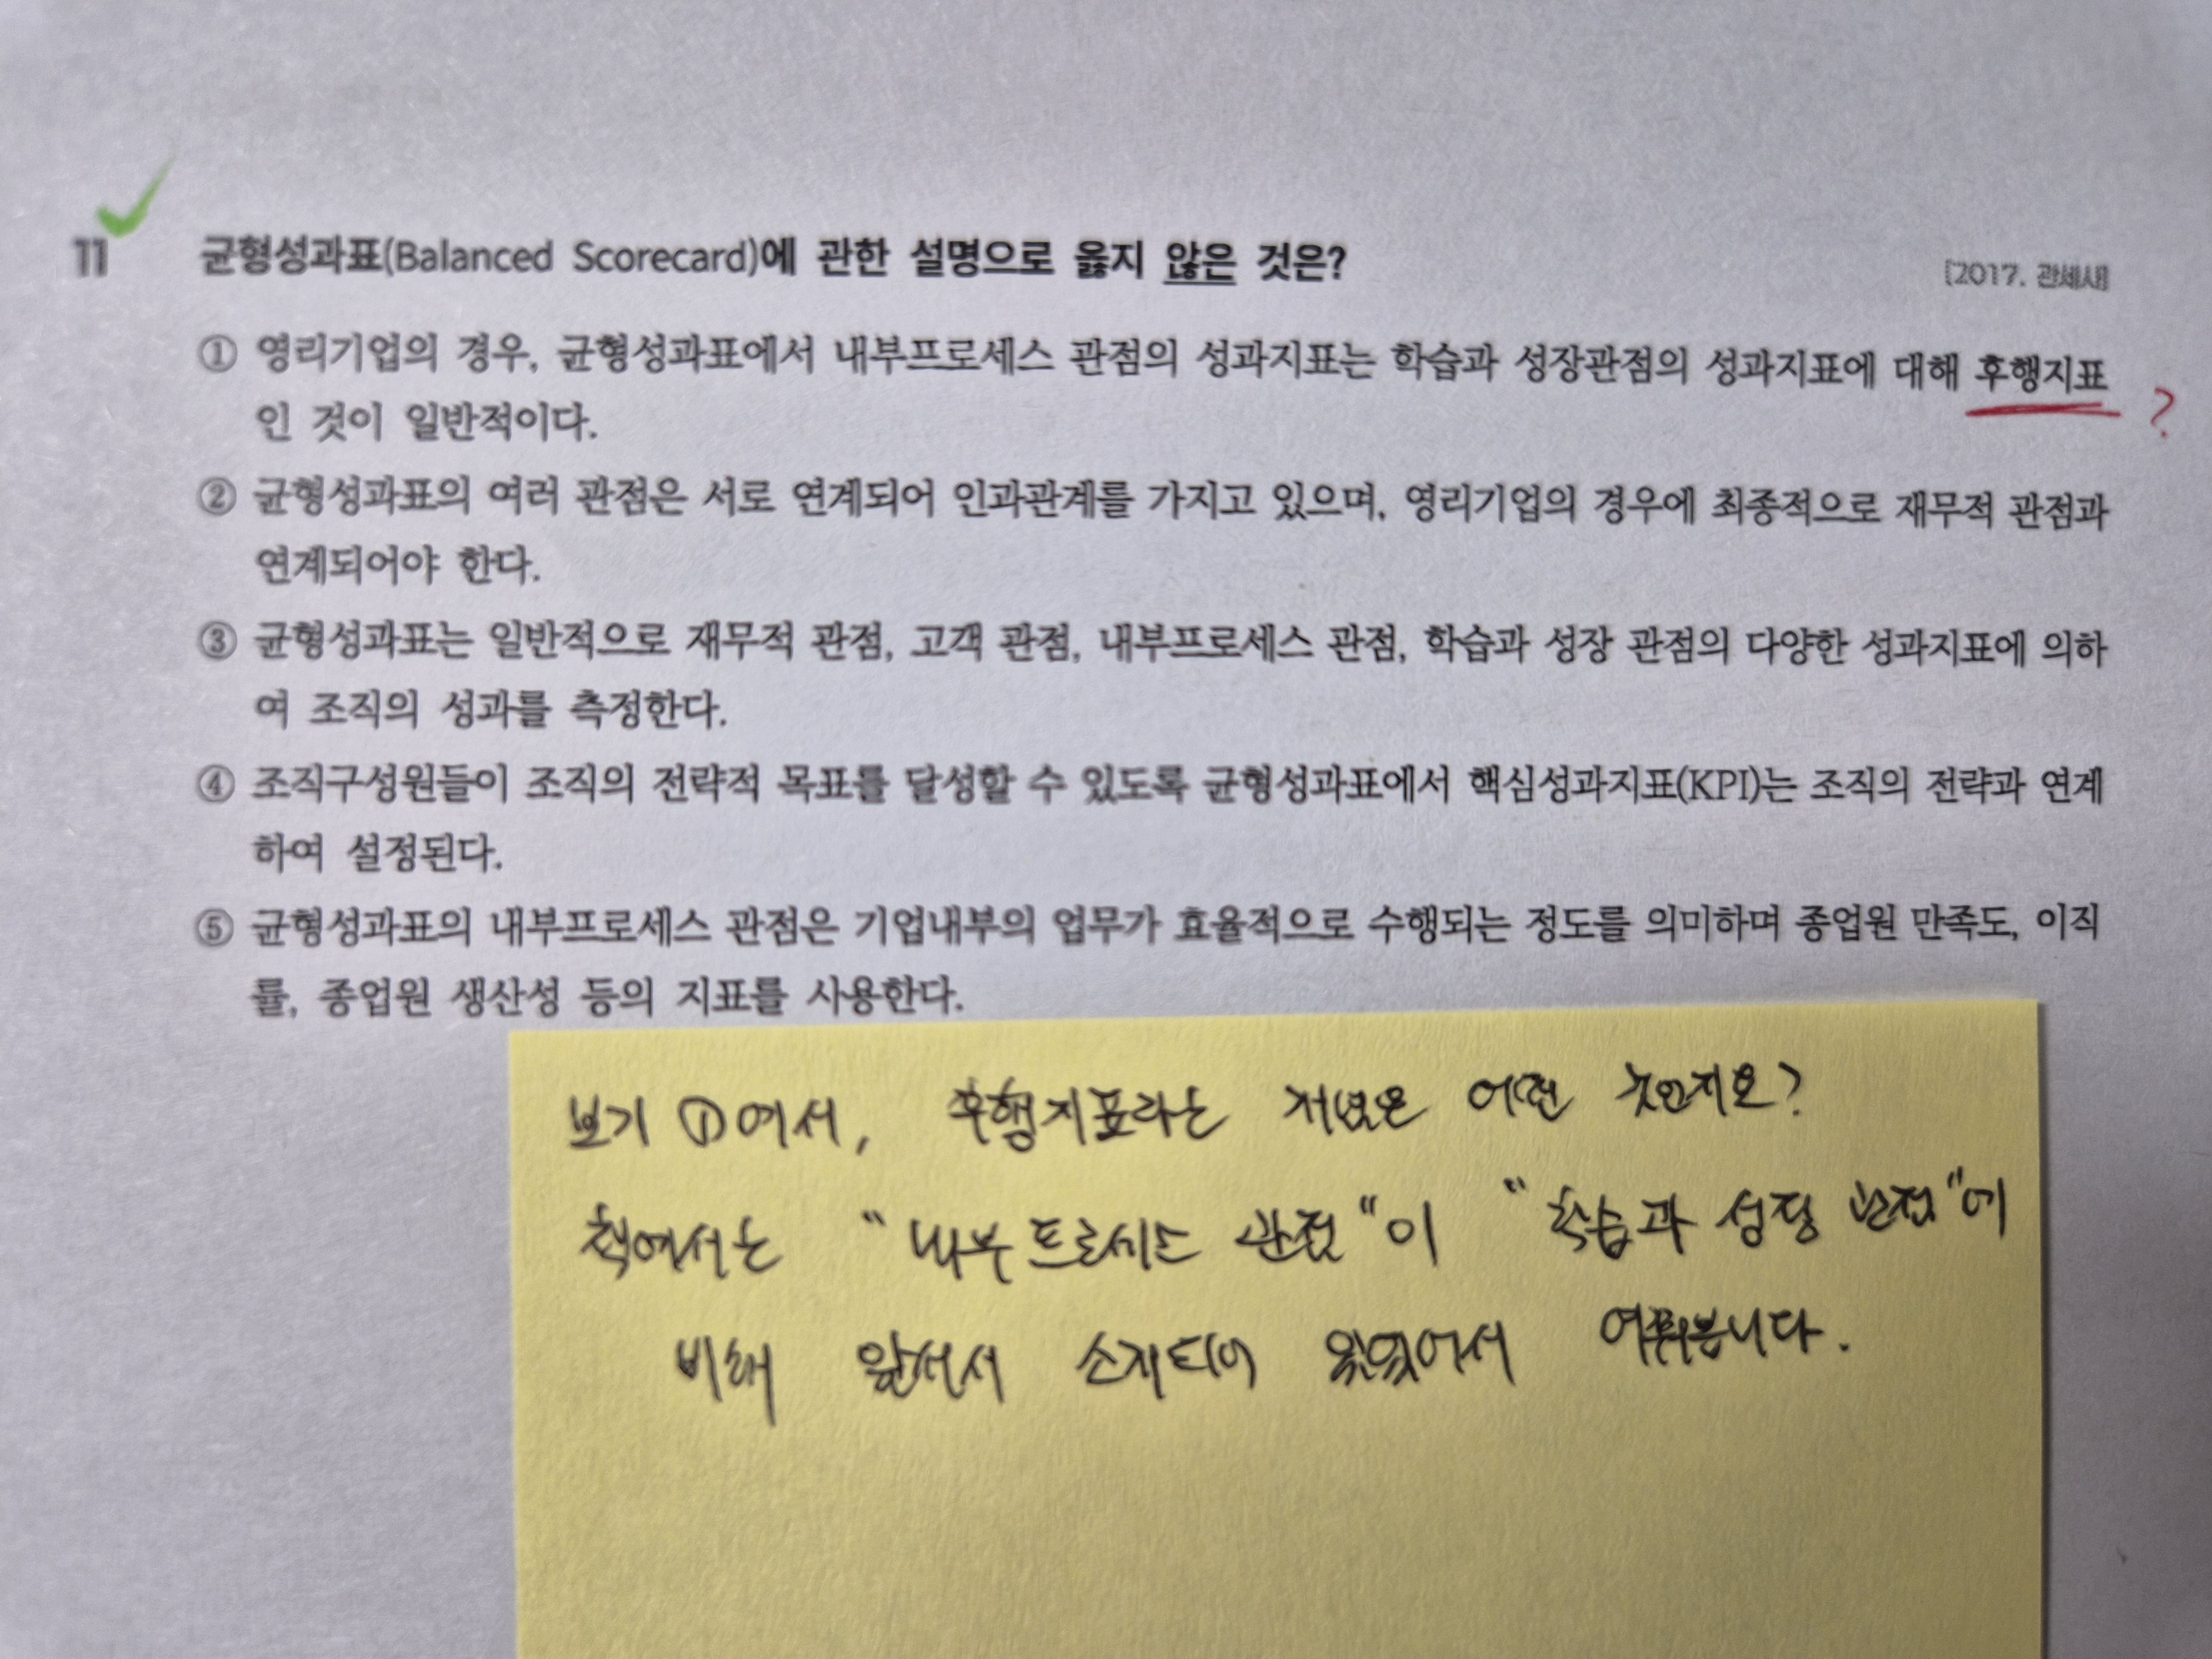 11 균형성과표(Balanced Scorecard)에 관한 설명으로 옳지 않은 것은?
[2017. 관세사]
① 영리기업의 경우, 균형성과표에서 내부프로세스 관점의 성과지표는 학습과 성장관점의 성과지표에 대해 후행지표
인 것이 일반적이다.
?
② 균형성과표의 여러 관점은 서로 연계되어 인과관계를 가지고 있으며, 영리기업의 경우에 최종적으로 재무적 관점과
연계되어야 한다.
③ 균형성과표는 일반적으로 재무적 관점, 고객 관점, 내부프로세스 관점, 학습과 성장 관점의 다양한 성과지표에 의하
여 조직의 성과를 측정한다.
④ 조직구성원들이 조직의 전략적 목표를 달성할 수 있도록 균형성과표에서 핵심성과지표(KPI)는 조직의 전략과 연계
하여 설정된다.
⑤ 균형성과표의 내부프로세스 관점은 기업내부의 업무가 효율적으로 수행되는 정도를 의미하며 종업원 만족도, 이직
률, 종업원 생산성 등의 지표를 사용한다.
보기 ①에서, 후행지표라는 개념은 어떤 것인지요?
책에서는 "내부프로세스 관점"이 "학습과 성장 관점"에
비해 앞서서 소개되어 있었어서 여쭤봅니다.